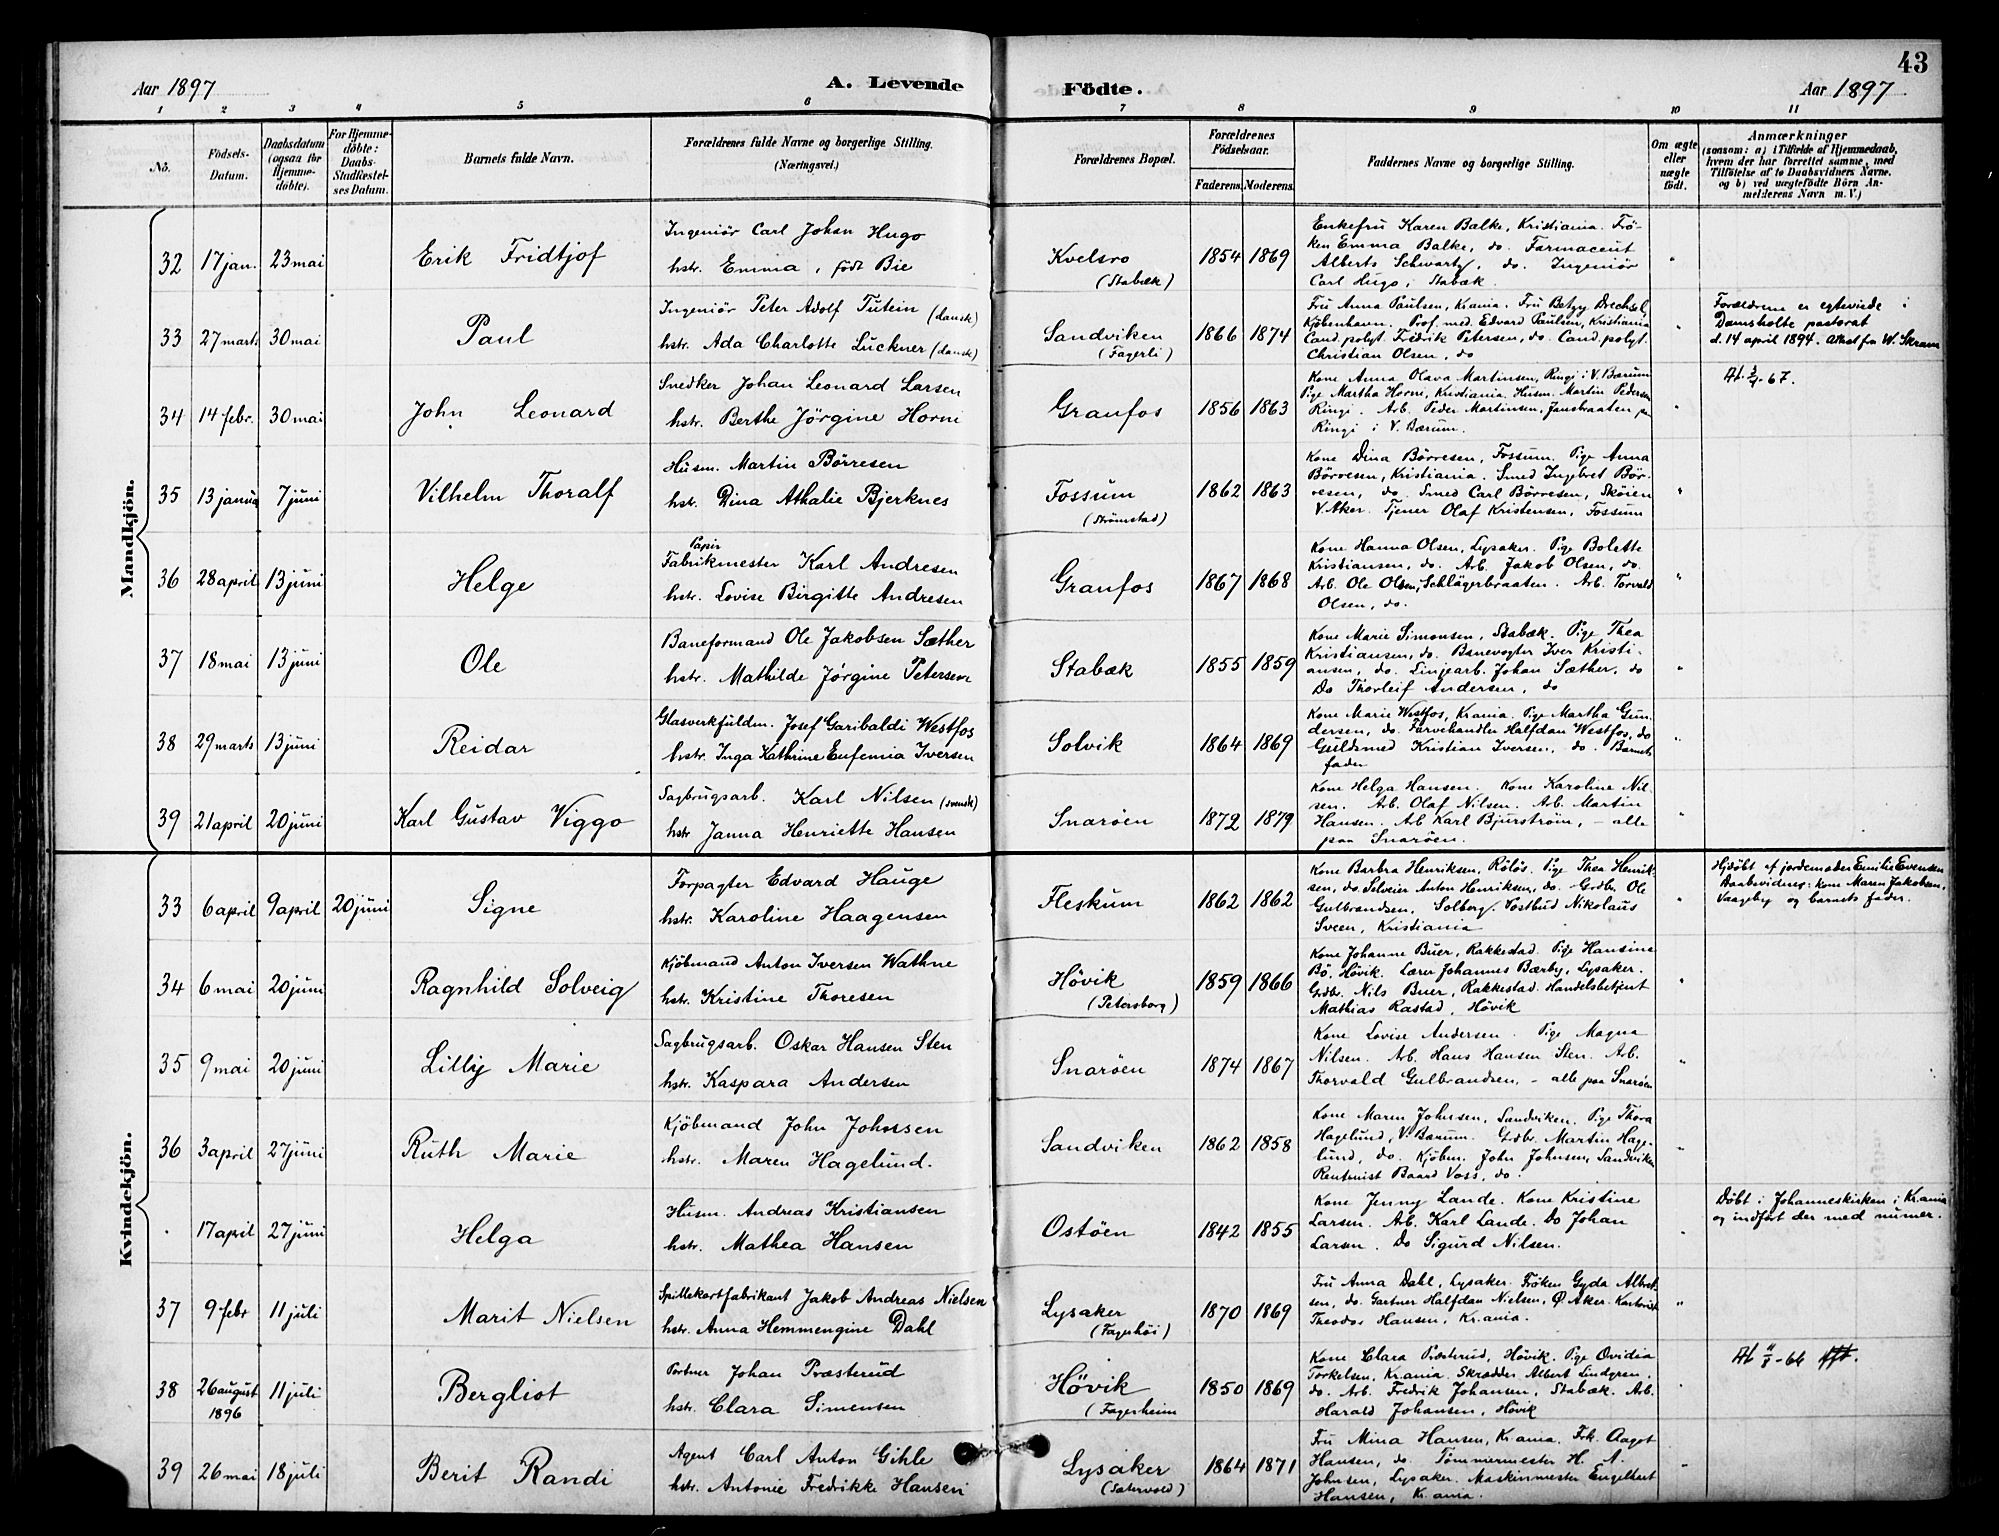 43
Aar 1897
A. Levende
Födte.
Aar 1897
1 2 3 4 5 6 7 8 9 10 11
No.
Födsels-
Datum.
Daabsdatum
(ogsaa for
Hjemme-
döbte).
For Hjemme-
döbte:
Daabs-
Stadfæstel-
ses Datum.
Barnets fulde Navn.
Forældrenes fulde Navne og borgerlige Stilling.
(Næringsvei.)
Forældrenes Bopæl.
Forældrenes
Födselsaar.
Faderens. Moderens.
Faddernes Navne og borgerlige Stilling.
Om ægte
eller
uægte
födt.
Anmærkninger
(saasom: a) i Tilfælde af Hjemmedaab,
hvem der har forrettet samme, med
Tilföielse af to Daabsvidners Navne.
og b) ved uægtefödte Börn An-
melderens Navn m. V.)
Mandkjön.
32 17 jan. 23 mai Erik Fridtjof
Ingeniör Carl Johan Hugo
hstr. Emma, født Bie
Kvelsro
(Stabæk)
1854 1869
Enkefru Karen Balke, Kristiania. Frö-
ken Emma Balke, do. Farmaceut
Alberts Schwartz, do. Ingeniör
Carl Hugo, Stabæk
33 27 marts 30 mai Paul
Ingeniör Peter Adolf Tutein (dansk)
hstr. Ada Charlotte Luckner (dansk)
Sandviken
(Fagerli)
1866 1874
Fru Anna Paulsen, Krania. Fru Betzy Drechsel,
Kjöbenhavn. Prof. med. Edvard Paulsen, Kristiania
Cand. polyt. Fredrik Petersen, do. Cand. polyt.
Christian Olsen, do
Forældrene er egteviede i
Damsholte pastorat
d. 14 april 1894. Attest fra W. Skram
34 14 febr. 30 mai John Leonard
Snedker Johan Leonard Larsen
hstr. Berthe Jörgine Horni
Granfos
1856 1863
Kone Anna Olava Martinsen, Ringi i V. Bærum
Pige Martha Horni, Kristiania. Husm. Martin Pedersen
Ringi. Arb. Peder Martinsen,
Ringi i V. Bærum.
35 13 januar 7 juni Vilhelm Thoralf
Husm. Martin Börresen
hstr. Dina Athalie Bjerknes
Fossum
(Strömstad)
1862 1863
Kone Dina Börresen, Fossum. Pige Anna
Börresen, Kristiania. Smed Ingbret Bör-
resen, do. Smed Carl Börresen, Sköien
V. Aker. Tjener Olaf Kristensen, Fossum
36 28 april 13 juni Helge
Papir
Fabrikmester Karl Andresen
hstr. Lovise Birgitte Andresen
Granfos
1867 1868
Kone Hanna Olsen, Lysaker. Pige Bolette
Kristiansen, do. Arb. Jakob Olsen, do.
Arb. Ole Olsen, Schlägerbraaten. Arb. Torvald
Olsen, do.
37 18 mai 13 juni Ole
Baneformand Ole Jakobsen Sæther
hstr. Mathilde Jørgine Petersen
Stabæk
1855 1859
Kone Marie Simonsen, Stabæk. Pige Thea
Kristiansen, do. Banevogter Iver Kristi-
ansen, do. Linjearb. Johan Sæther, do
Do Thorleif Andersen, do
38 29 marts 13 juni Reidar
Glasverkfuldm. Josef Garibaldi Westfos
hstr. Inga Kathrine Eufemia Iversen
Solvik
1864 1869
Kone Marie Westfos, Krania. Pige Martha Gun-
dersen, do. Farvehandler Halfdan Westfos, do
Guldsmed Kristian Iversen, do. Barnets
fader
39 21 april 20 juni Karl Gustav Viggo
Sagbrugsarb. Karl Nilsen (svensk)
hstr Janna Henriette Hansen
Snaröen
1872 1879
Kone Helga Hansen. Kone Karoline Nil-
sen. Arb. Olaf Nilsen. Arb. Martin
Hansen. Arb Karl Bjurström, - alle
paa Snaröen.
Kvindekjön.
33 6 april 9 april 20 juni Signe
Forpagter Edvard Hauge
hstr. Karoline Haagensen
Fleskum
1862 1862
Kone Barbra Henriksen, Rölös. Pige Thea Henrik-
sen, do. Selveier Anton Henriksen, do. Grdbr. Ole
Gulbrandsen, Solberg. Postbud Nikolaus
Sveen, Kristiania
Hjdöbt af jordemoder Emilie Evensen
Daabsvidner: kone Maren Jakobsen,
Vaageby og barnets fader.
34 6 mai 20 juni Ragnhild Solveig
Kjöbmand Anton Iversen Wathne
hstr. Kristine Thoresen
Hövik
(Petersborg)
1859 1866
Kone Johanne Buer, Rakkestad. Pige Hansine
Bö, Hövik. Lærer Johannes Bærby, Lysaker.
Grdbr. Nils Buer, Rakkestad. Handelsbetjent
Mathias Rastad, Hövik
35 9 mai 20 juni Lilly Marie
Sagbrugsarb. Oskar Hansen Sten
hstr. Kaspara Andersen
Snaröen
1874 1867
Kone Lovise Andersen. Pige Magna
Nilsen. Arb. Hans Hansen Sten. Arb.
Thorvald Gulbrandsen, - alle paa Snaröen
36 3 april 27 juni Ruth Marie
Kjöbmand John Johnsen
hstr. Maren Hagelund.
Sandviken
1862 1858
Kone Maren Johnsen, Sandviken. Pige Thora
Hagelund, V. Bærum. Grdbr. Martin Hage-
lund, do. Kjöbm. John Johnsen, Sandviken
Rentenist Baard Voss, do.
17 april 27 juni Helga
Husm. Andreas Kristiansen
hstr. Mathea Hansen
Ostöen
1842 1855
Kone Jenny Lande. Kone Kristine
Larsen. Arb. Karl Lande. Do Johan
Larsen. Do Sigurd Nilsen.
Döbt i Johanneskirken i Kr.ania
og indfört der med numer.
37 9 febr 11 juli Marit Nielsen
Spillekortfabrikant Jakob Andreas Nielsen
hstr. Anna Hemmengine Dahl
Lysaker
(Fagerhöi)
1870 1869
Fru Anna Dahl, Lysaker. Fröken Gyda Albret-
sen, do. Gartner Halfdan Nielsen, Ø. Aker.
Theodor Hansen, Kr.ania.
38 26 august 1896 11 juli Bergliot
Portner Johan Præsterud
hstr. Clara Simensen
Hövik
(Fagerheim
1850 1869
Kone Clara Præsterud, Hövik. Pige Ovidia
Torkelsen, Kr.ania. Skrædder Albert Lindgren,
do. Arb. Fredrik Johansen, Stabæk. Arb.
Harald Johansen, Hövik
39 26 mai 18 juli Berit Randi
Agent Carl Anton Gihle
hstr. Antonie Fredrikke Hansen
Lysaker
(Sætervold)
1864 1871
Fru Mina Hansen, Kr.ania. Frk. Aagot
Hansen, do. Tömmermester H. A.
Johnsen, Lysaker. Maskinmester Engelbert
Hansen, Kr.ania.